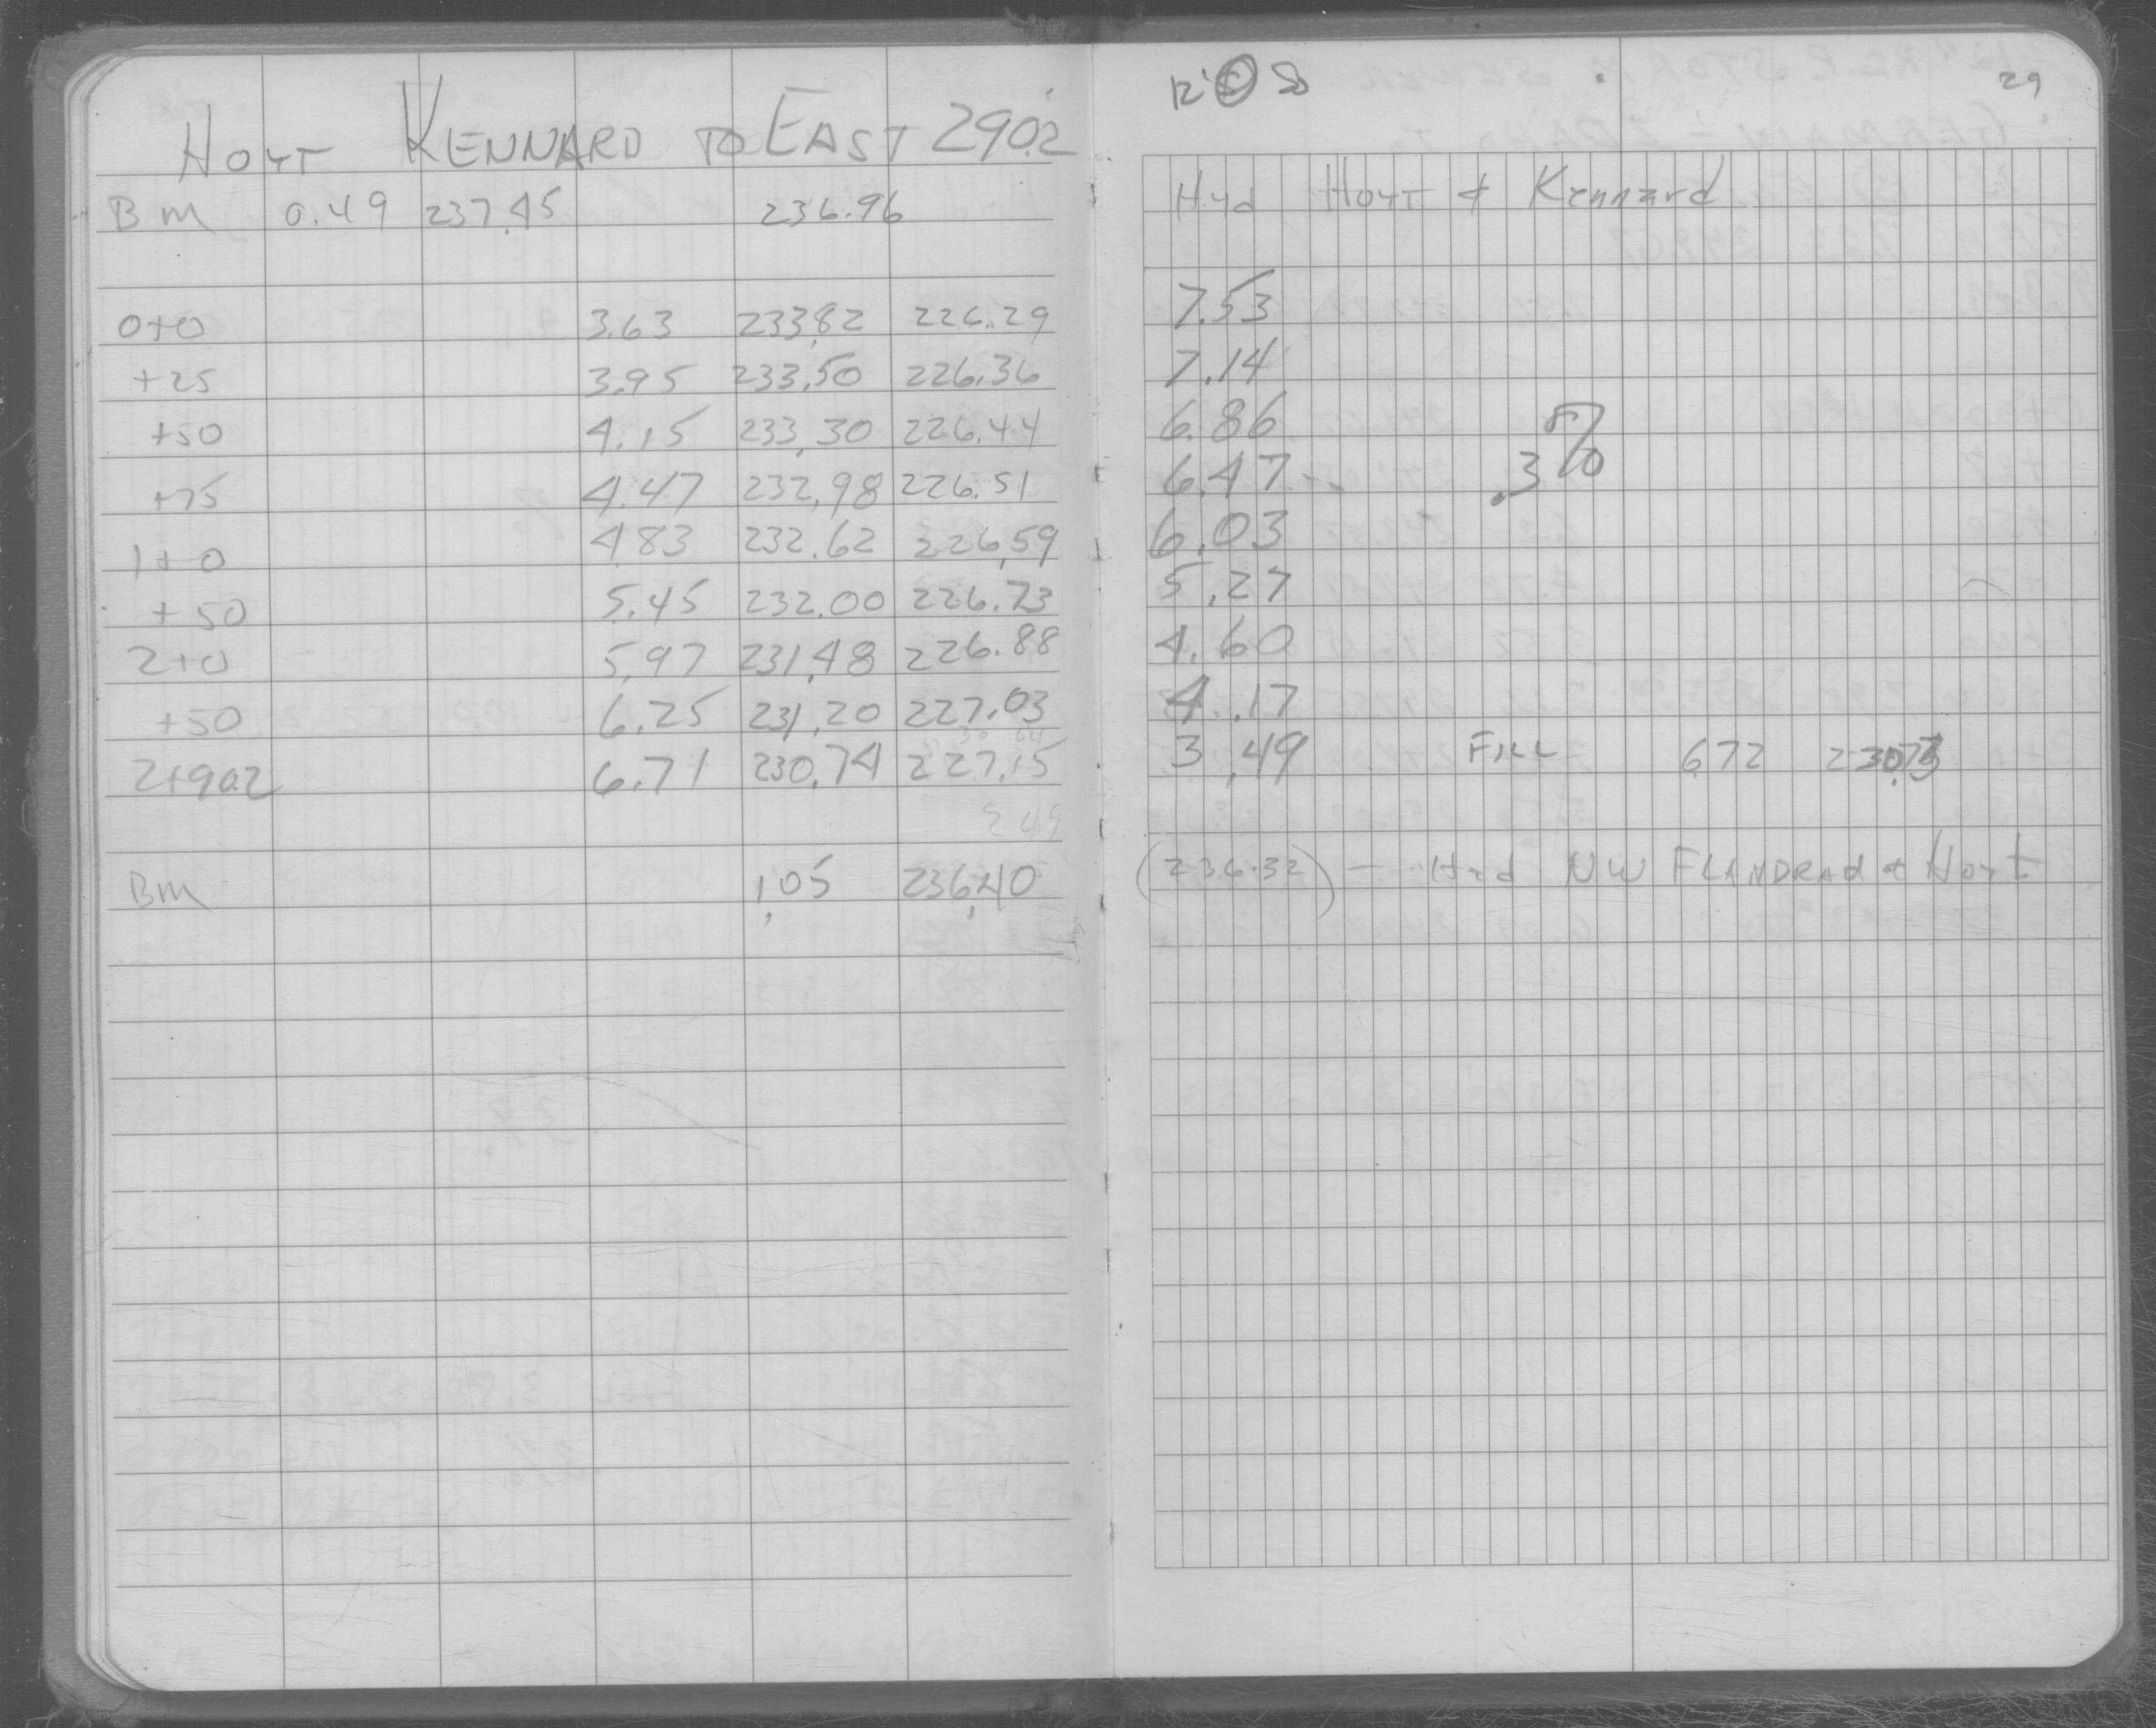 HOYT KENNARD TO EAST 290.2'
BM 0.49 237.45 236.96
0+0 3.63 233.82 226.29
+25 3.95 233.50 226.36
+50 4.15 233.30 226.44
+75 4.47 232.98 226.51
1+0 4.83 232.62 226.59
+50 5.45 232.00 226.73
2+0 5.97 231.48 226.88
+50 6.25 231.20 227.03
2+90.2 6.71 230.74 227.15
BM 1.05 236.40
29
Hyd Hoyt & Kennard
7.53
7.14
6.86
6.47 .3%
6.03
5.27
4.60
4.17
3.49 FILL 6.72 230.73
(236.32) - Hyd NW FLANDRAU & Hoyt